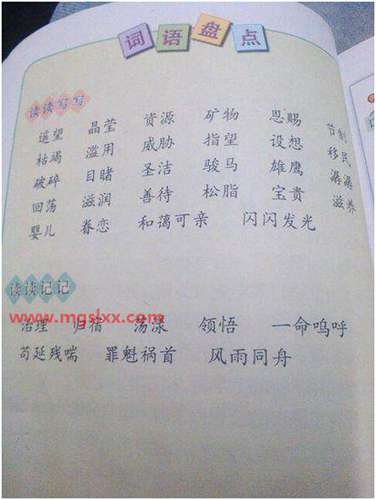 词语盘点
读读写写
遥望 晶莹 资源 矿物 恩赐 节制
枯竭 滥用 威胁 指望 设想 移民
破碎 目睹 圣洁 骏马 雄鹰 潺潺
回荡 滋润 善待 松脂 宝贵 滋养
婴儿 眷恋 和蔼可亲 闪闪发光
读读记记
www.mgslxx.com
治理 归宿 荡漾 领悟 一命呜呼
苟延残喘 罪魁祸首 风雨同舟